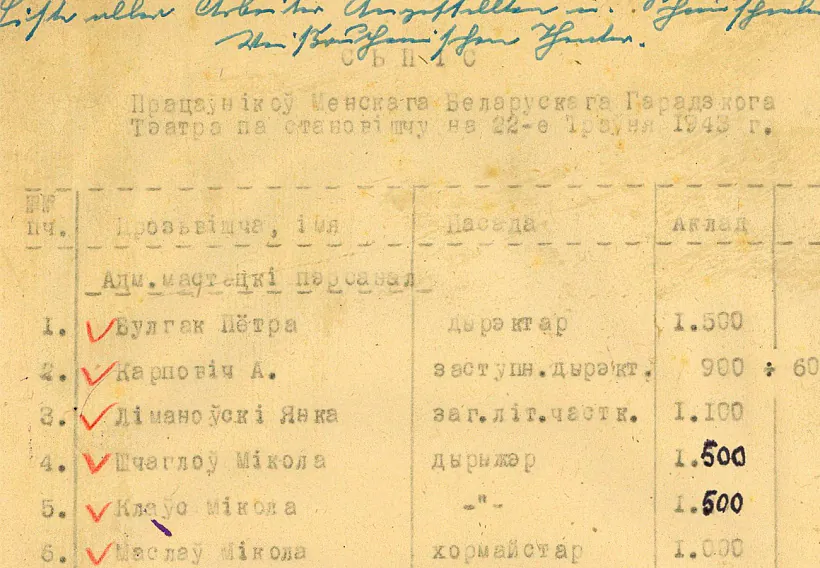 Liste aller Arbeiter Angestellten u.
Weißruthenischen Theater.
СЬПІС
Працаўнікоў Менскага Беларускага Гарадзкога
Тэатра па становішчу на 22-е Траўня 1943 г.
№№
пч. Прозьвішча, імя Пасада Аклад
Адм.мастацкі пэрсанал
1. Булгак Пётра дырэктар 1.500
2. Карповіч А. заступн.дырэкт. 900 ÷ 60
3. Ліманоўскі Янка заг.літ.частк. 1.100
4. Шчаглоў Мікола дырыжэр 1.500
5. Клаўс Мікола -"- 1.500
6. Маслаў Мікола хормайстар 1.000